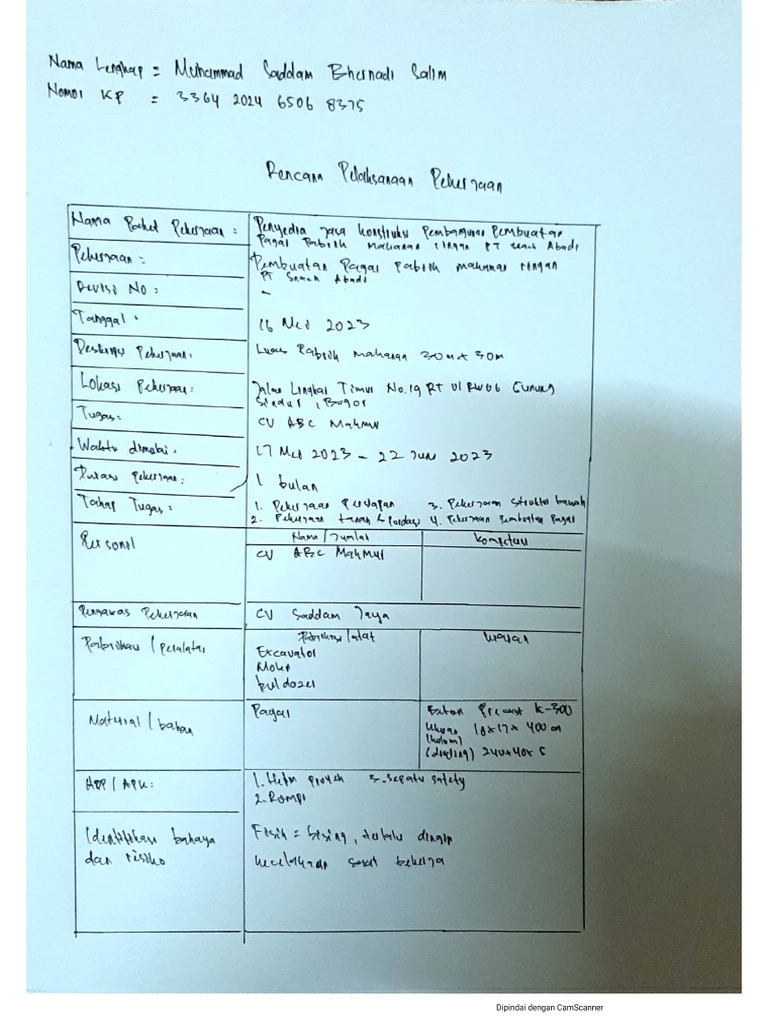 Nama Lengkap = Muhammad Saddam Bhernadi Salim
Nomor KP = 3364 2024 6506 8375
Rencana Pelaksanaan Pekerjaan
Nama Paket Pekerjaan : Penyedia Jasa Konstruksi Pembangunan Pembuatan
Pagar Pabrik makanan ringan PT Snack Abadi
Pekerjaan : Pembuatan Pagar Pabrik makanan ringan
PT Snack Abadi
Revisi No : -
Tanggal : 16 Mei 2023
Deskripsi Pekerjaan : Luas Pabrik Makanan 30m x 30m
Lokasi Pekerjaan : Jalan Lingkar Timur No.19 RT 01 RW06 Gunung
Sindur, Bogor
Tugas : CV ABC Makmur
Waktu dimulai : 17 Mei 2023 - 22 Juni 2023
Durasi Pekerjaan : 1 bulan
Tahap Tugas : 1. Pekerjaan Persiapan 3. Pekerjaan Struktur bawah
2. Pekerjaan tanah & Pondasi 4. Pekerjaan Pembuatan Pagar
Personil Nama / Jumlah Kompetensi
CV ABC Makmur
Pengawas Pekerjaan CV Saddam Jaya
Pabrikasi / Peralatan Pabrikasi / alat
Excavator
Molen
buldozer
Matrial / bahan Pagar Beton Precast K-300
Ukuran 18x17x 400 cm
(kolom)
(dinding) 240x40x5
ADP / APK : 1. Helm proyek 3. Sepatu safety
2. Rompi
Identifikasi bahaya Fisik = bising, terlalu dingin
dan risiko kecelakaan saat bekerja
Dipindai dengan CamScanner